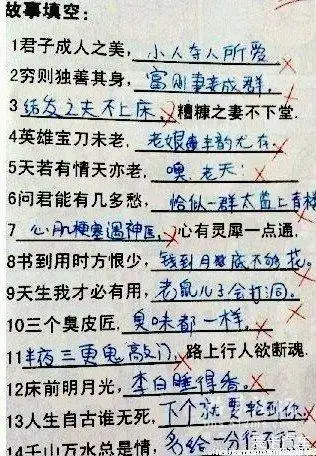 故事填空:
1君子成人之美,小人夺人所爱
2穷则独善其身,富则妻妾成群,
3结发之夫不上床,糟糠之妻不下堂.
4英雄宝刀未老,老娘丰韵尤存.
5天若有情天亦老,噢老天:
6问君能有几多愁,恰似一群太监上青楼
7心肌梗塞遇神医,心有灵犀一点通,
8书到用时方恨少,钱到月底不够花。
9天生我才必有用,老鼠儿子会打洞.
10三个臭皮匠,臭味都一样,
11半夜三更鬼敲门,路上行人欲断魂.
12床前明月光,李白睡得香。
13人生自古谁无死,下个就要轮到你.
14千山万水总是情,多给一分行不行